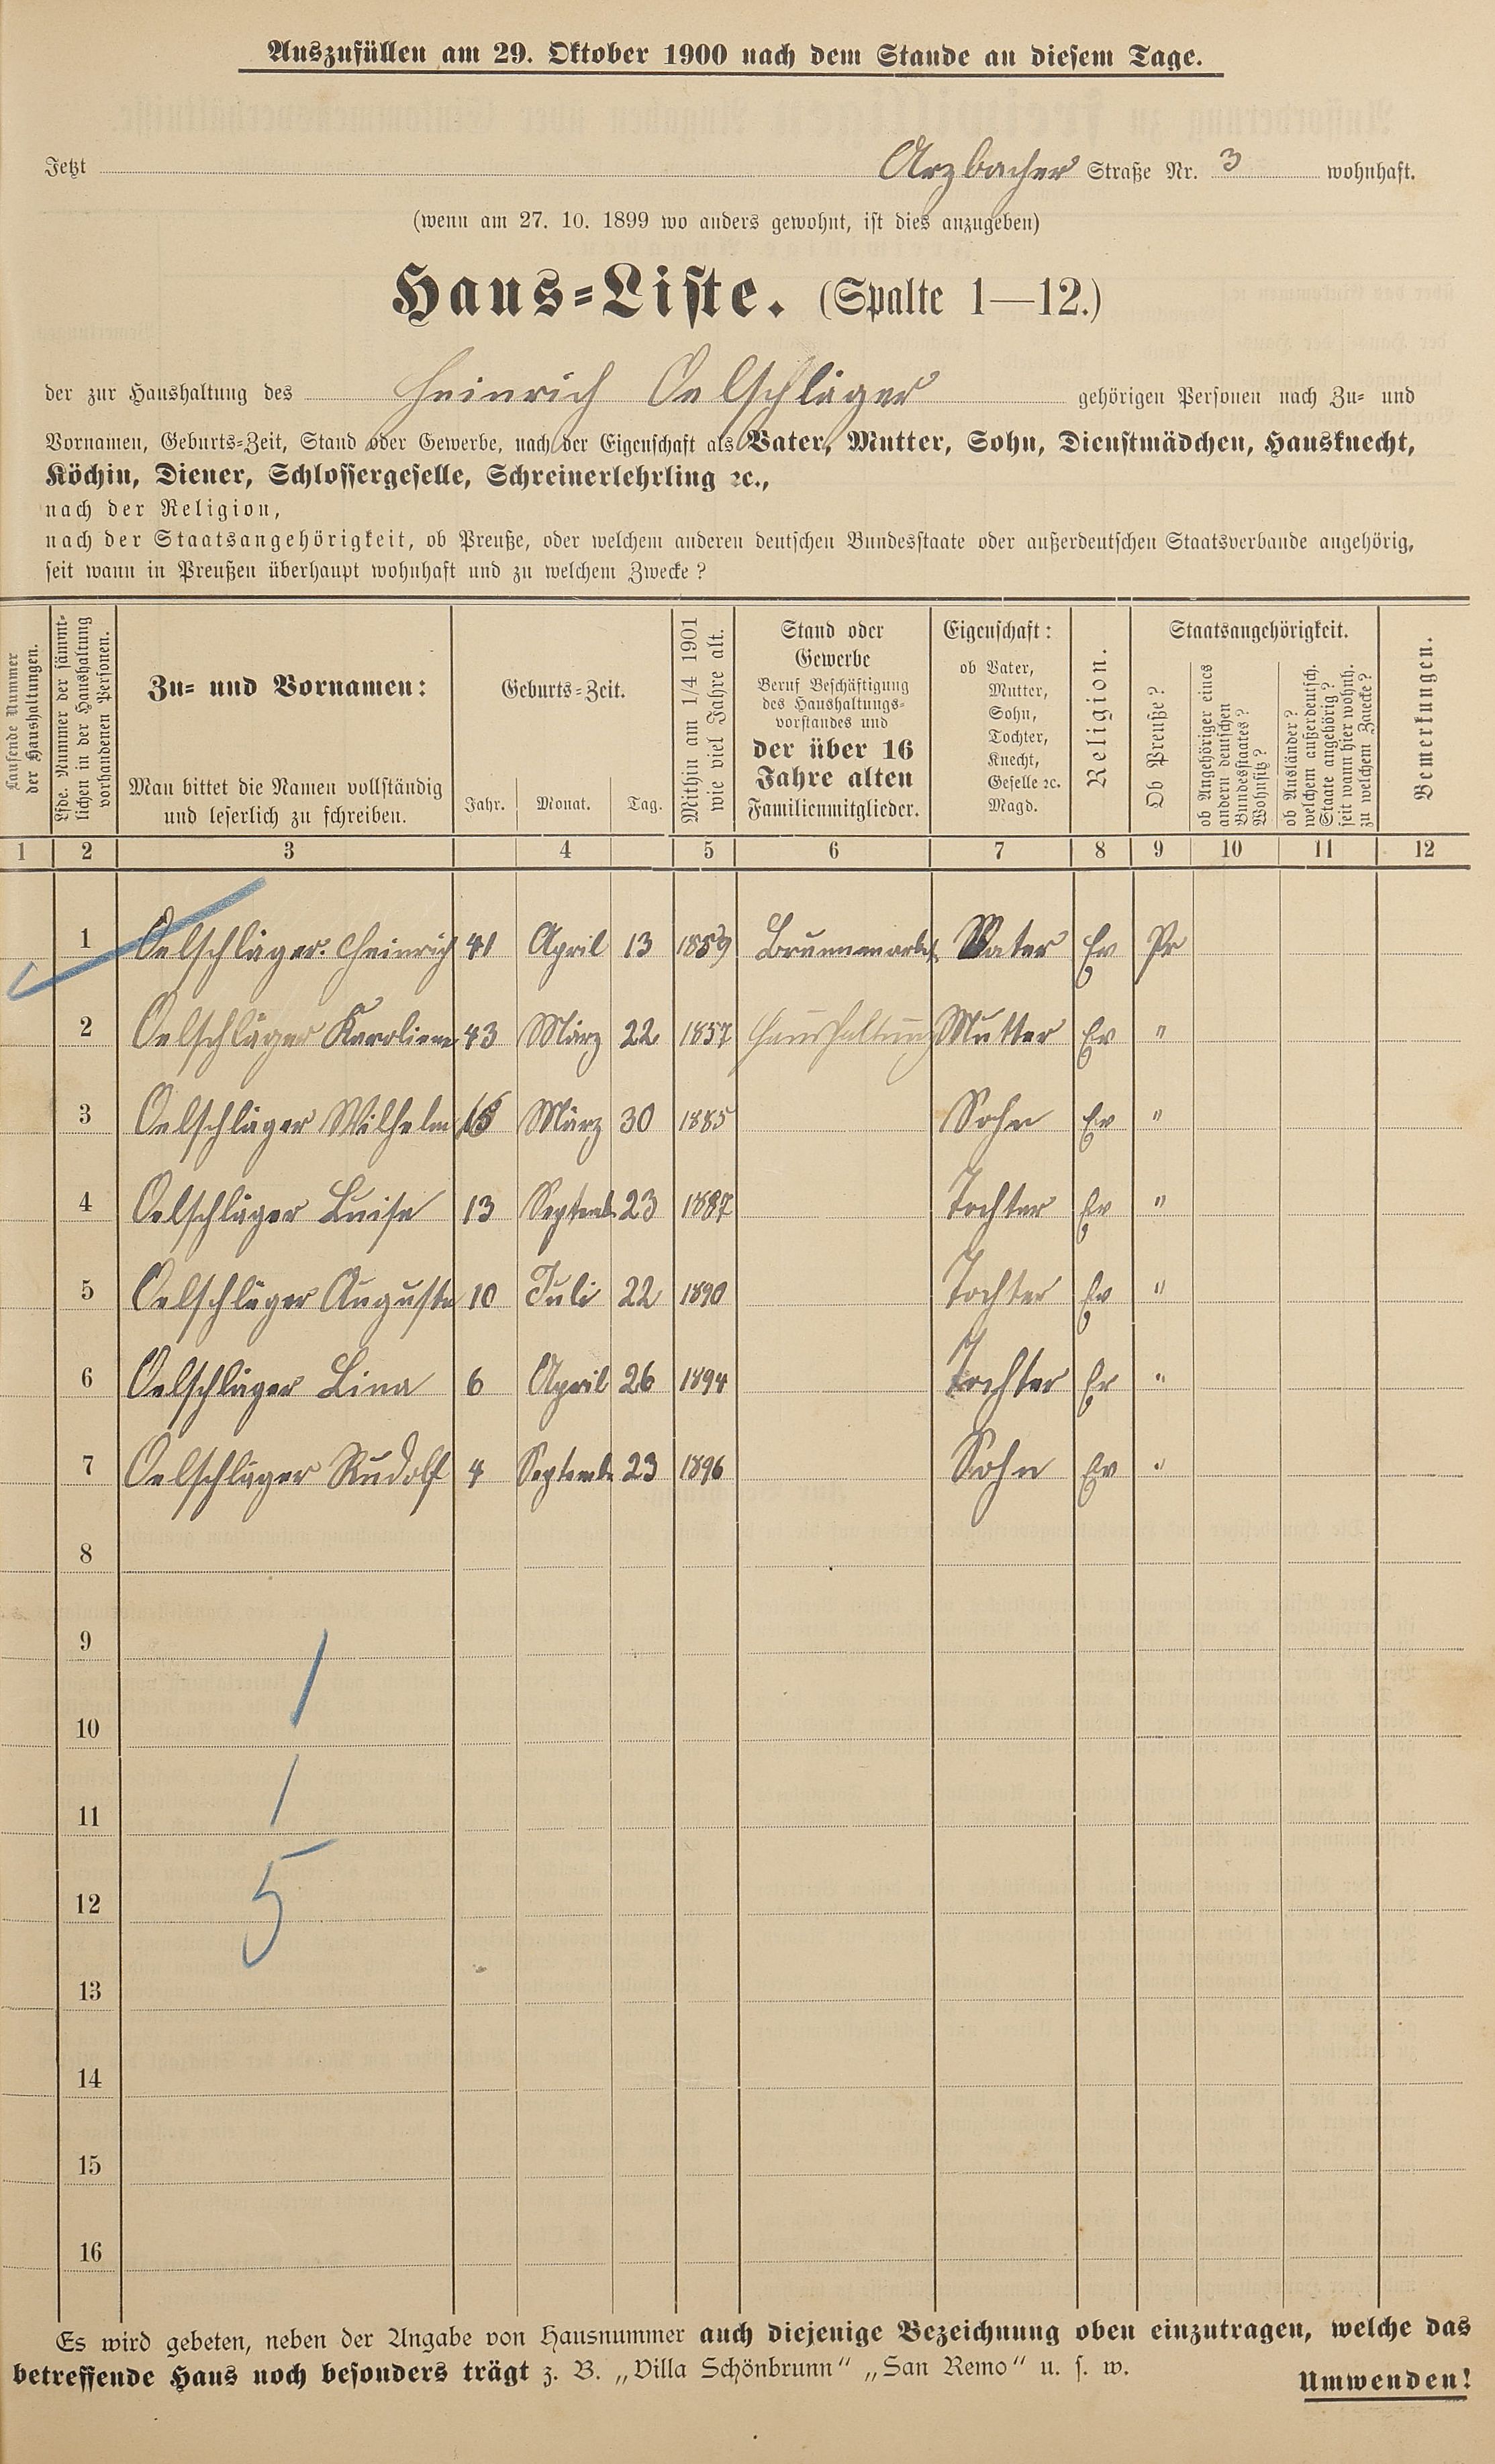 Auszufüllen am 29. Oktober 1900 nach dem Stande an diesem Tage.
Jetzt Arzbacher Straße Nr. 3 wohnhaft.
(wenn am 27. 10. 1899 wo anders gewohnt, ist dies anzugeben)
Haus-Liste. (Spalte 1—12.)
der zur Haushaltung des Heinrich Oelschläger gehörigen Personen nach Zu- und
Vornamen, Geburts-Zeit, Stand oder Gewerbe, nach der Eigenschaft als Vater, Mutter, Sohn, Dienstmädchen, Hausknecht,
Köchin, Diener, Schlossergeselle, Schreinerlehrling ꝛc.,
nach der Religion,
nach der Staatsangehörigkeit, ob Preuße, oder welchem anderen deutschen Bundesstaate oder außerdeutschen Staatsverbande angehörig,
seit wann in Preußen überhaupt wohnhaft und zu welchem Zwecke?
Laufende Nummer
der Haushaltungen.
Lfde. Nummer der sämmt-
lichen in der Haushaltung
vorhandenen Personen.
Zu- und Vornamen:
Man bittet die Namen vollständig
und leserlich zu schreiben.
Geburts-Zeit.
Jahr. Monat. Tag.
Mithin am 1/4 1901
wie viel Jahre alt.
Stand oder
Gewerbe
Beruf Beschäftigung
des Haushaltungs-
vorstandes und
der über 16
Jahre alten
Familienmitglieder.
Eigenschaft:
ob Vater,
Mutter,
Sohn,
Tochter,
Knecht,
Geselle ꝛc.
Magd.
Religion.
Staatsangehörigkeit.
Ob Preuße?
ob Angehöriger eines
andern deutschen
Bundesstaates?
Wohnsitz?
ob Ausländer?
welchem außerdeutsch.
Staate angehörig?
seit wann hier wohnh.
zu welchem Zwecke?
Bemerkungen.
1 2 3 4 5 6 7 8 9 10 11 12
1 Oelschläger. Heinrich 41 April 13 1859 Brunnenarbt. Vater Ev Pr
2 Oelschläger Karoliene 43 März 22 1857 Haushaltung Mutter Ev "
3 Oelschläger Wilhelm März 30 1885 Sohn Ev "
4 Oelschläger Luise 13 Septemb. 23 1887 Tochter Ev "
5 Oelschläger Auguste 10 Juli 22 1890 Tochter Ev "
6 Oelschläger Lina 6 April 26 1894 Tochter Ev "
7 Oelschläger Rudolf 4 Septemb. 23 1896 Sohn Ev "
8
9
1
10
11
1
12
5
13
14
15
16
Es wird gebeten, neben der Angabe von Hausnummer auch diejenige Bezeichnung oben einzutragen, welche das
betreffende Haus noch besonders trägt z. B. „Villa Schönbrunn“ „San Remo“ u. s. w.
Umwenden!